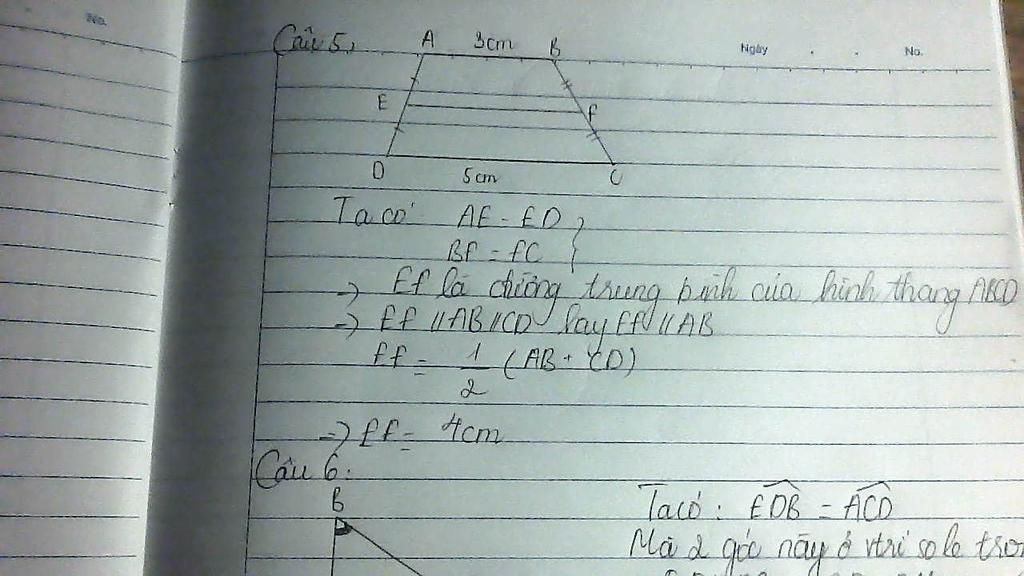 No.
Ngày . . No.
Câu 5,
A 3cm B
E F
D 5cm C
Ta có AE = ED }
BF = FC
=> EF là đường trung bình của hình thang ABCD
=> EF // AB // CD hay EF // AB
EF = 1/2 (AB + CD)
=> EF = 4cm
Câu 6:
B
Ta có : EDB = ACD
Mà 2 góc này ở vtrí so le tron